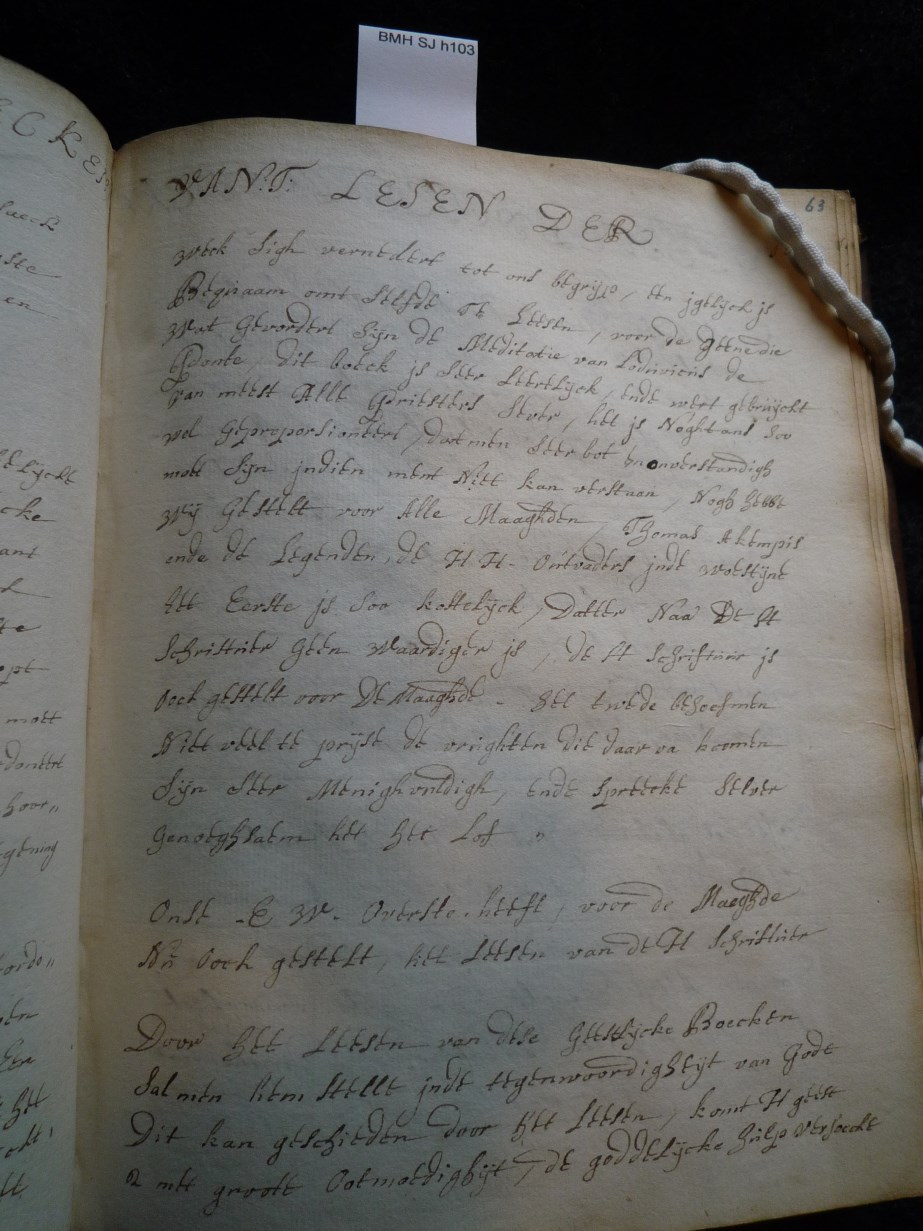 BMH SJ h103
63
VANT LESEN DER
weck Sigh vernedert tot ons begrijp, een jgelijck js
Beqúaam omt selfde Te Leesen, voor de geene die
wat Gevordert Sijn de Meditatie van Lodúvicús de
Ponte, dit boeck js Seer Leerlijck, ende wert gebrúijckt
van meest Alle Priesters Seer, het js Noghtans Soo
wel Geproporsioneert, dat men Seer bot onverstandigh
moet Sijn jndien ment Niet kan verstaan, Nogh hebbe
wij Gestelt voor Alle Maaghden, Thomas Akempis
ende de Legenden, de H H - Oútvaders jnde woestijne
het Eerste js Soo kostelijck, Datter Naa De H
Schriftúer Geen waardiger js, de H Schriftúer js
oock gestelt voor De Maaghde - het twede behoefmen
Niet veel te prijse de vrúghten die daar va koomen
Sijn Seer Menighvúldigh, ende Spreeckt Selver
Genoeghsaem het Lof „
Onse - E W - Overste heeft, voor de Maeghde
Nú oock gestelt, het Leesen van de H Schriftúer
Door het Leesen van dese Geestlijcke Boecken
Sal men hem stelle jnde tegenwoordigheijt van Gode
Dit kan geschieden door het Leesen, komt H geest
2 met groote Ootmoedighijt, de goddelijcke húlp versoeckt